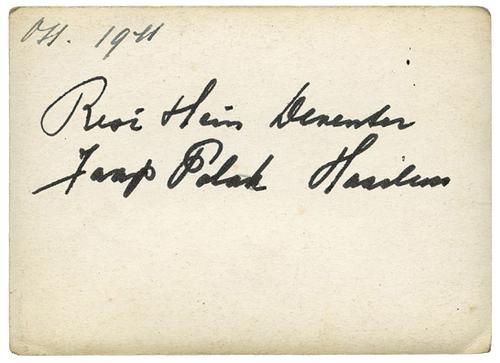 Oct. 1941
Resi Hein Deventer
Jaap Polak Haarlem